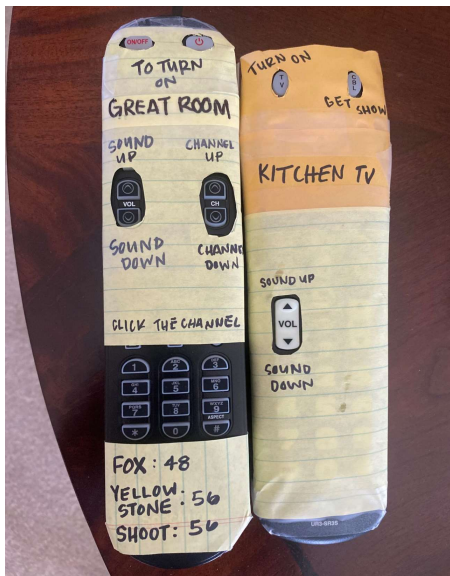 ON/OFF
TO TURN
ON
GREAT ROOM
SOUND
UP
CHANNEL
UP
VOL
CH
SOUND
DOWN
CHANNEL
DOWN
CLICK THE CHANNEL
1
ABC
2
DEF
3
GHI
4
JKL
5
MNO
6
PQRS
7
TUV
8
WXYZ
9
ASPECT
*
0
#
FOX: 48
YELLOW
STONE: 56
SHOOT: 56
TURN ON
TV
CBL
GET SHOW
KITCHEN TV
SOUND UP
VOL
SOUND
DOWN
UR3-SR3S